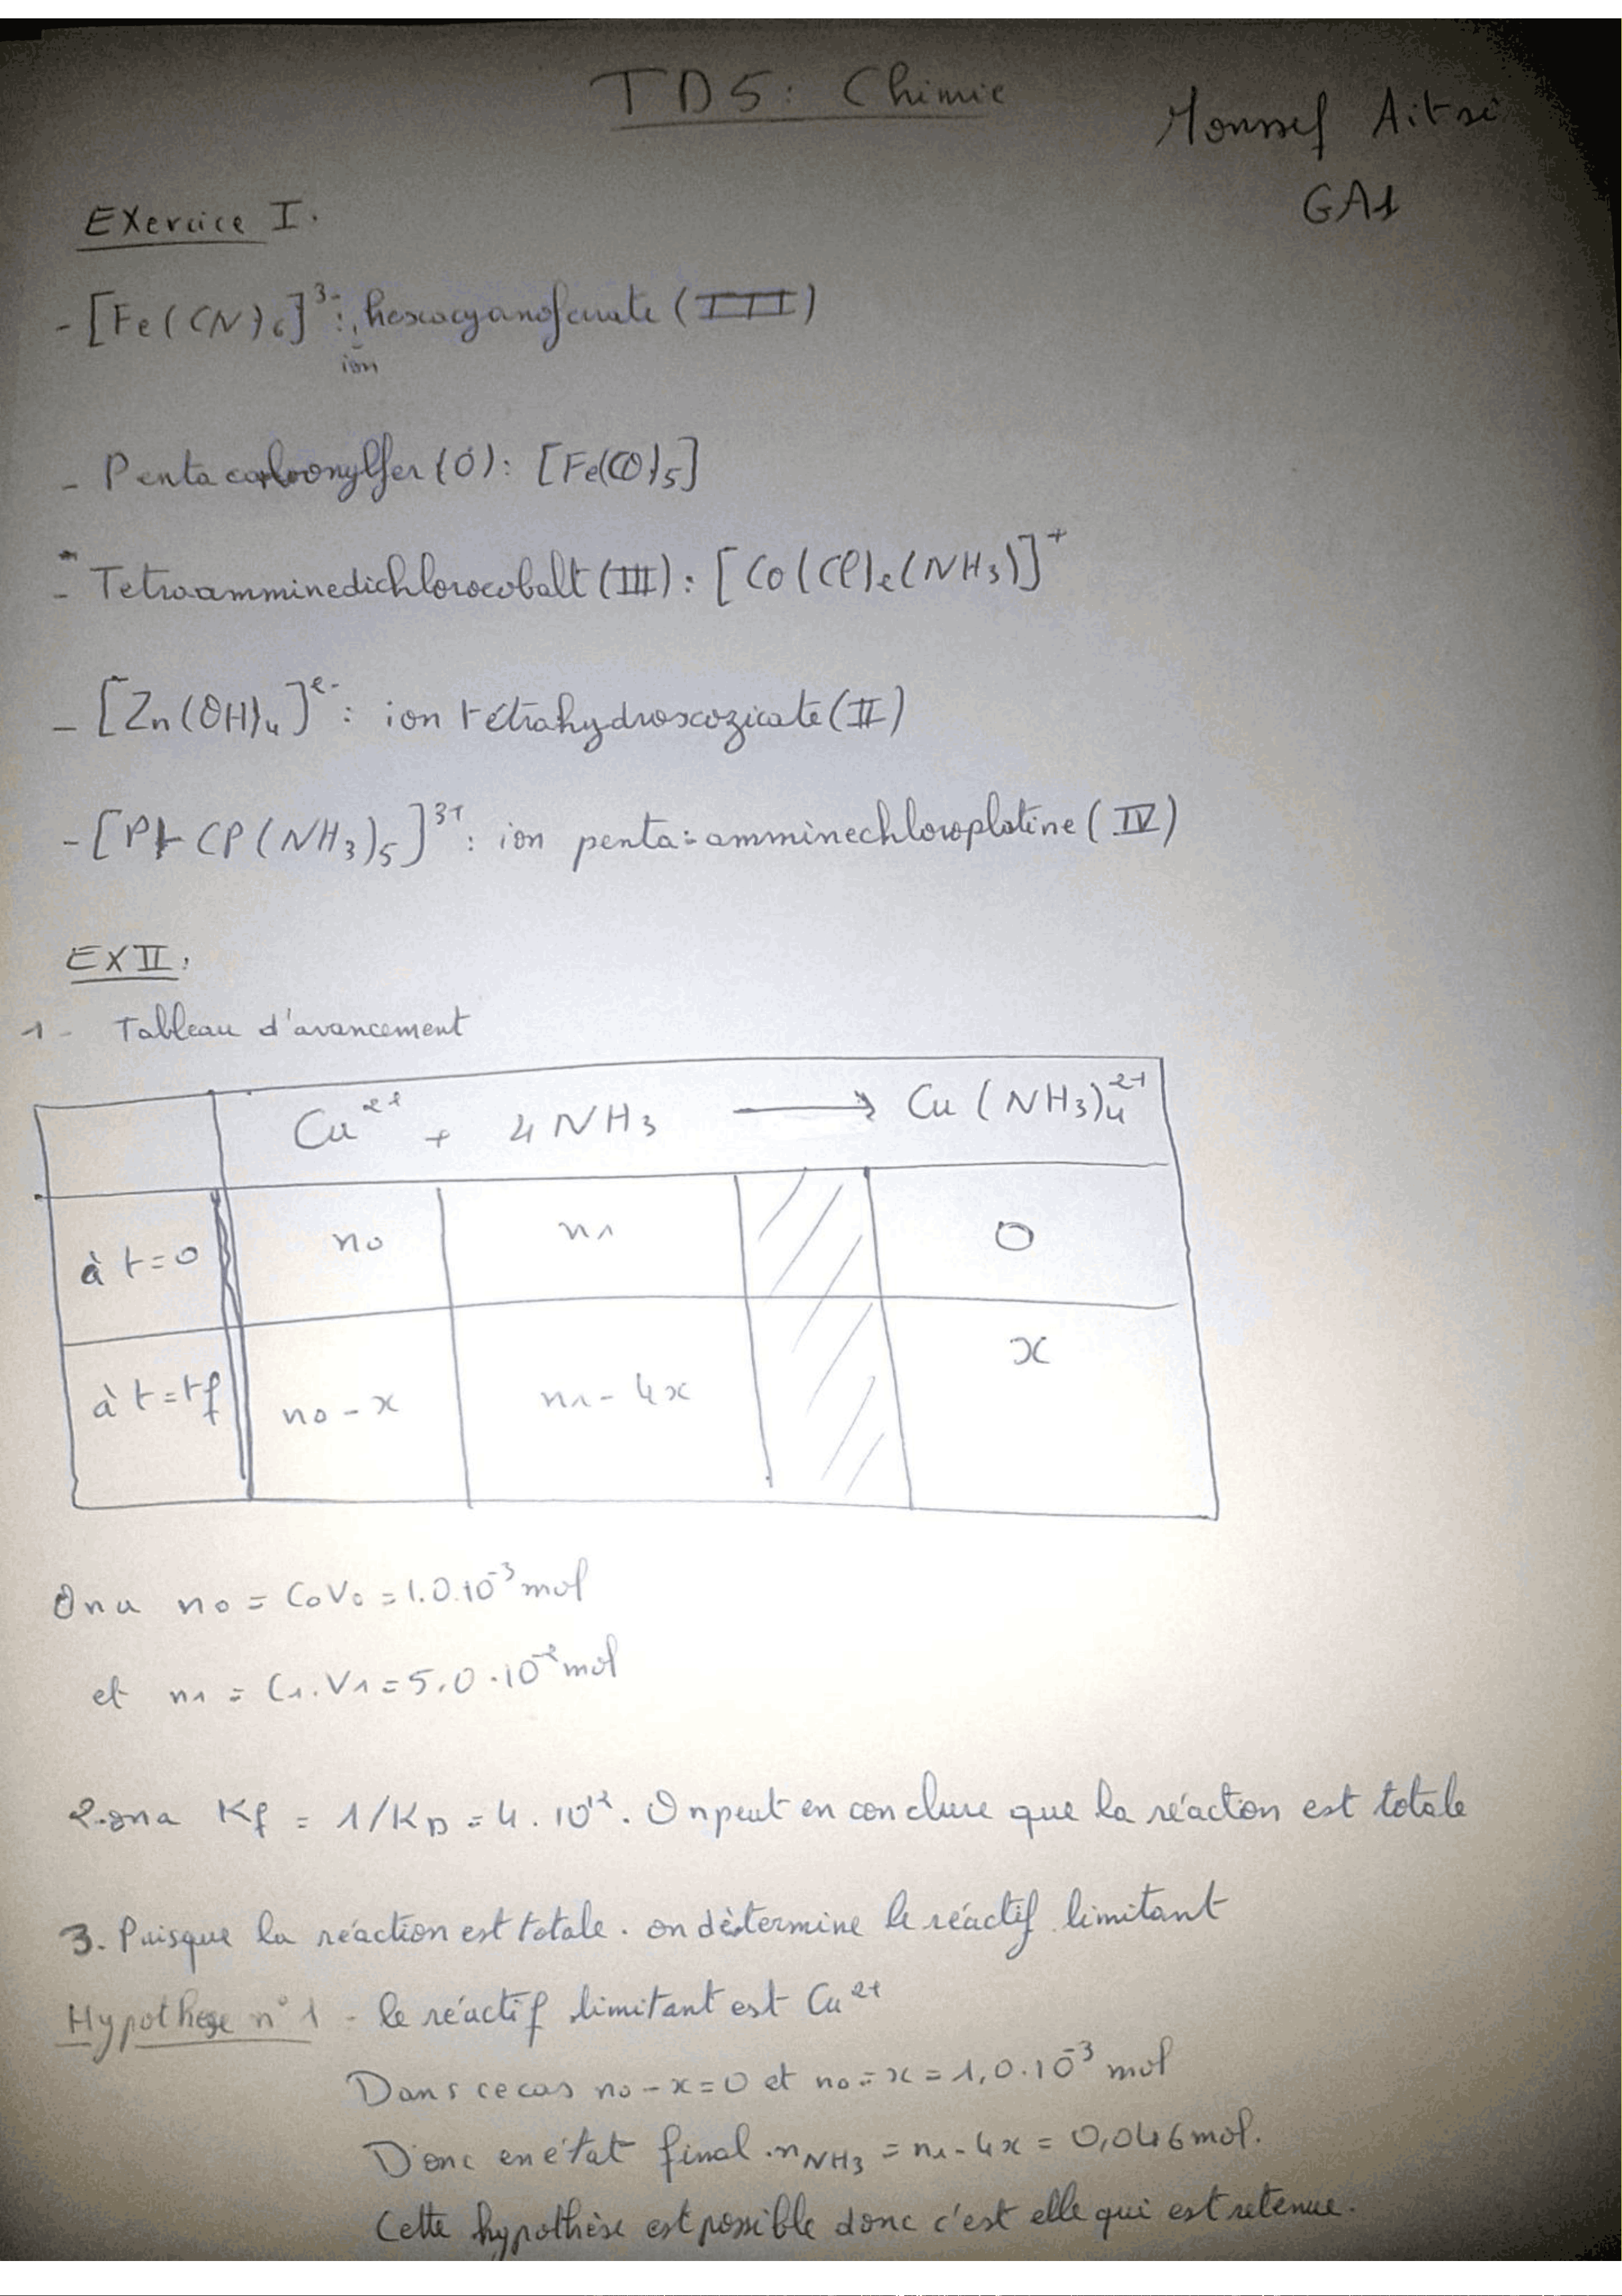 TD5: Chimie
Moussef Aitsi
GA1
Exercice I.
- [Fe(CN)6]³⁻: hexacyanoferrate (III)
ion
- Pentacarbonylfer (0): [Fe(CO)5]
- Tetraamminedichlorocobalt (III): [Co(Cl)2(NH3)]⁺
- [Zn(OH)4]²⁻: ion tétrahydroxozicate (II)
- [Pt Cl (NH3)5]³⁺: ion penta-amminechloroplatine (IV)
EX II.
1- Tableau d'avancement
Cu²⁺ + 4NH3 → Cu(NH3)4²⁺
à t=0 n0 n1 0
à t=tf n0-x n1-4x x
On a n0 = C0V0 = 1.0.10⁻³ mol
et n1 = C1.V1 = 5,0.10⁻² mol
2-on a Kf = 1/KD = 4.10¹². On peut en conclure que la réaction est totale
3. Puisque la réaction est totale. on détermine le réactif limitant
Hypothese n°1 - le réactif limitant est Cu²⁺
Dans ce cas n0-x=0 et n0=x=1,0.10⁻³ mol
Donc en état final. nNH3 = n1-4x = 0,046mol.
Cette hypothèse est possible donc c'est elle qui est retenue.